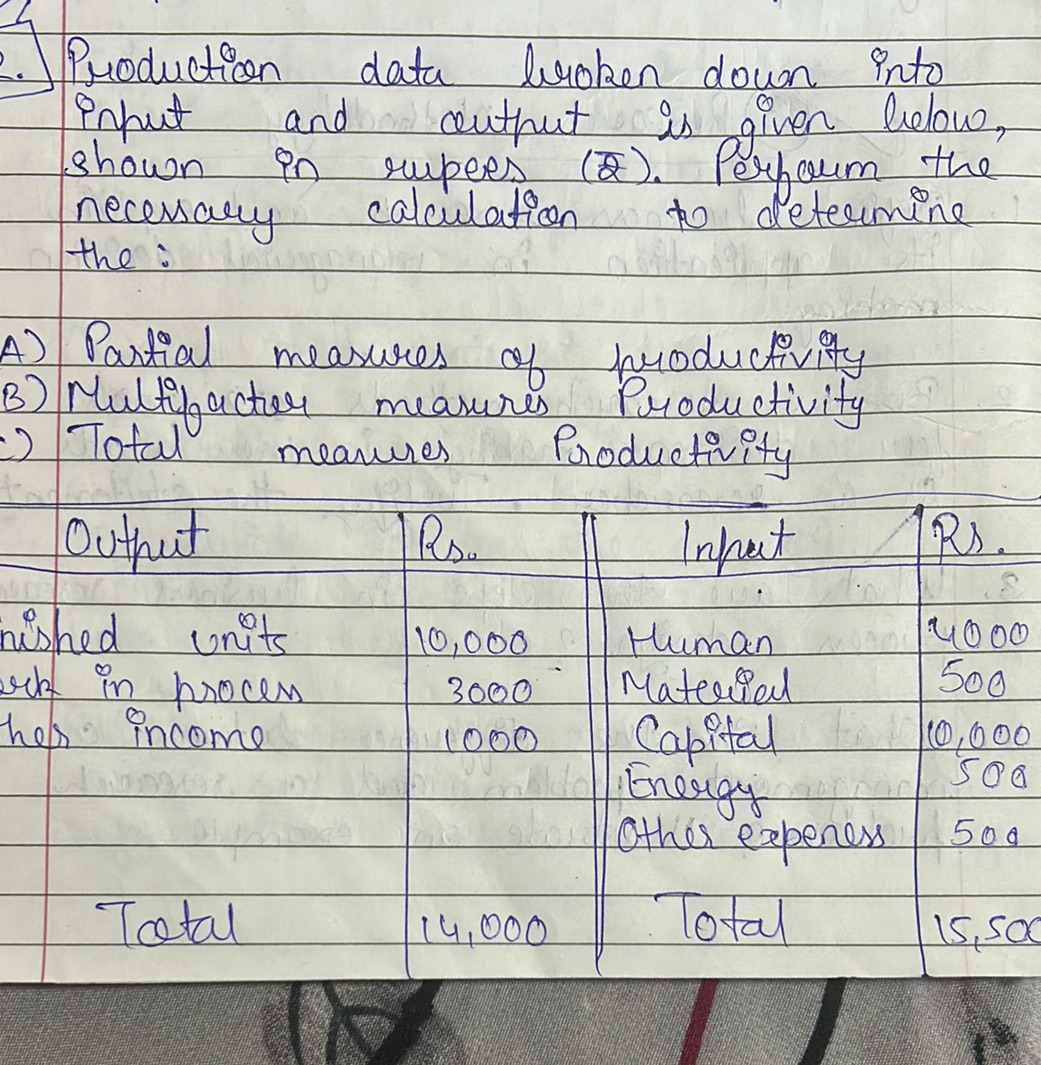 2. Production data broken down into
input and output is given below,
shown in rupees (₹). Perform the
necessary calculation to determine
the :
A) Partial measures of productivity
B) Multifactior measures Productivity
C) Total measures Productivity
Output Rs. Input Rs.
nished units 10,000 Human 4000
ork in process 3000 Material 500
her income 1000 Capital 10,000
Energy 500
Other expeness 500
Total 14,000 Total 15,500